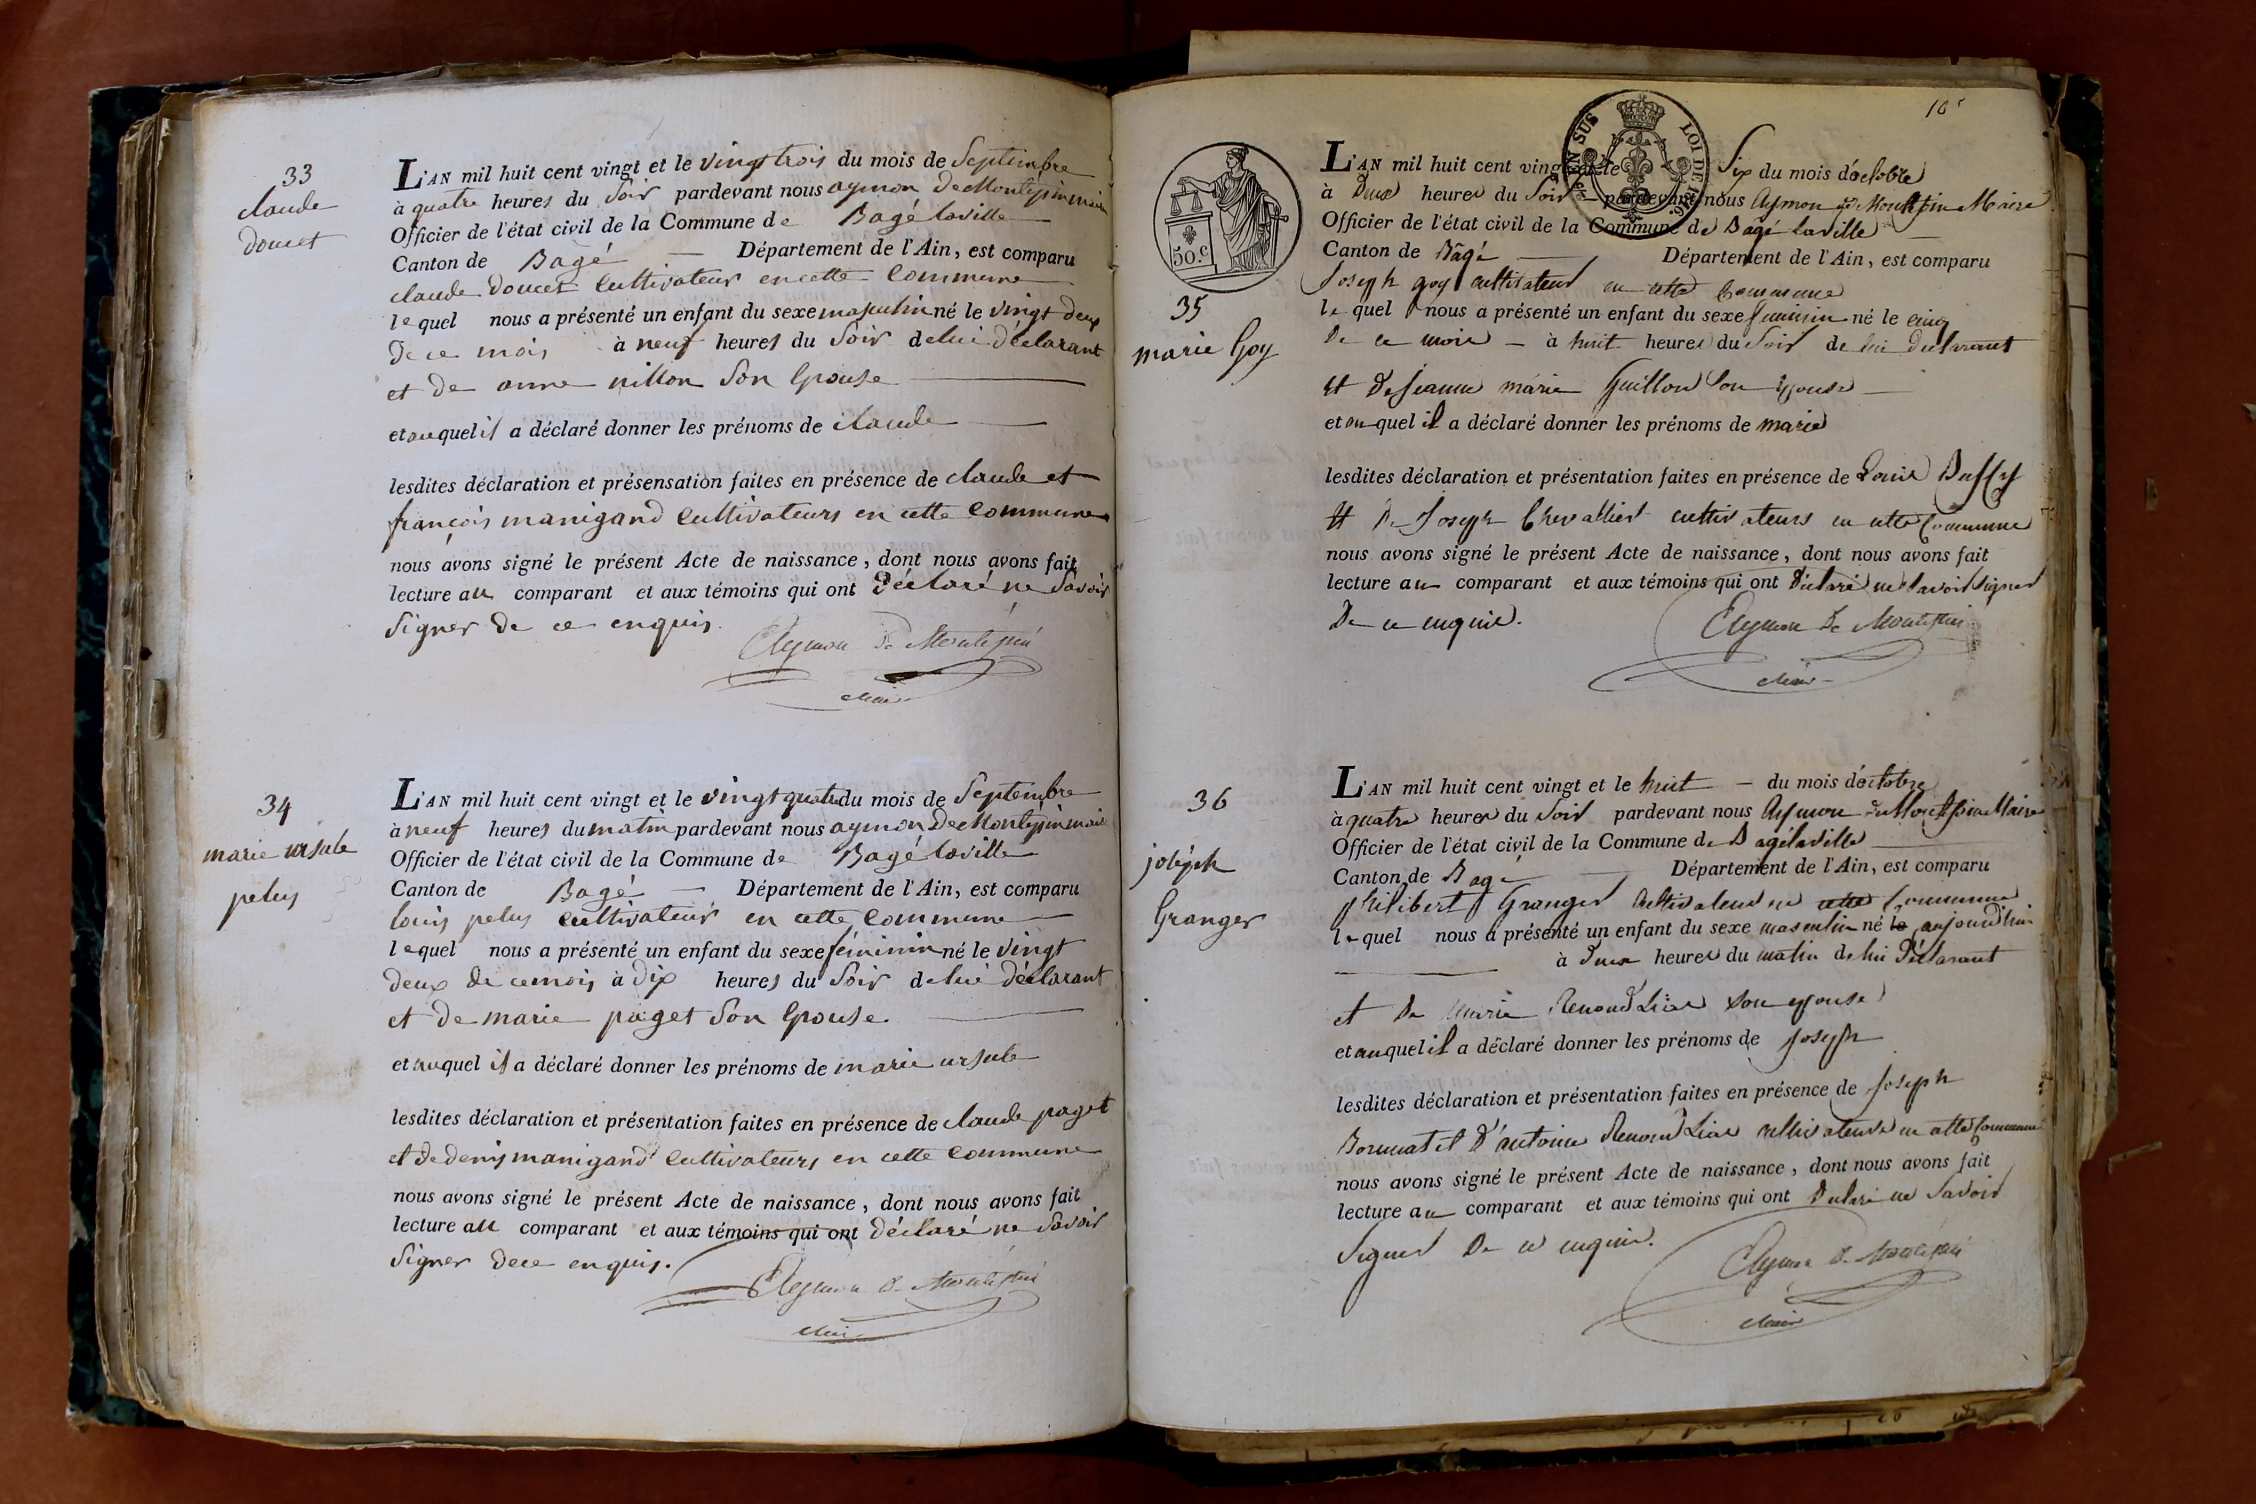 33
claude
doucet
L'AN mil huit cent vingt et le vingt trois du mois de Septembre
à quatre heures du Soir pardevant nous aymon de Montépin maire
Officier de l'état civil de la Commune de Bagé laville
Canton de Bagé Département de l'Ain, est comparu
claude doucet cultivateur en cette commune
lequel nous a présenté un enfant du sexe masculin né le vingt deux
de ce mois à neuf heures du Soir de lui déclarant
et de anne nillon Son Epouse
et auquel il a déclaré donner les prénoms de claude
lesdites déclaration et présensation faites en présence de claude et
françois manigand cultivateurs en cette commune
nous avons signé le présent Acte de naissance, dont nous avons fait
lecture au comparant et aux témoins qui ont déclaré ne Savoir
Signer de ce enquis.
Aymon De Montépin
Maire
34
marie ursule
pelus
L'AN mil huit cent vingt et le vingt quatre du mois de Septembre
à neuf heures du matin pardevant nous aymon de Montépin maire
Officier de l'état civil de la Commune de Bagé laville
Canton de Bagé Département de l'Ain, est comparu
louis pelus cultivateur en cette commune
lequel nous a présenté un enfant du sexe féminin né le vingt
deux de ce mois à dix heures du Soir de lui déclarant
et de marie paget Son Epouse
et auquel il a déclaré donner les prénoms de marie ursule
lesdites déclaration et présentation faites en présence de claude paget
et de denis manigand cultivateurs en cette commune
nous avons signé le présent Acte de naissance, dont nous avons fait
lecture au comparant et aux témoins qui ont déclaré ne Savoir
Signer de ce enquis.
Aymon De Montépin
Maire
50.c
LOI DE 1816
35
marie Goy
L'AN mil huit cent vingt et le Six du mois d'octobre
à Deux heures du Soir pardevant nous Aymon de Montépin Maire
Officier de l'état civil de la Commune de Bagé laville
Canton de Bagé Département de l'Ain, est comparu
Joseph goy cultivateur en cette Commune
lequel nous a présenté un enfant du sexe feminin né le cinq
De ce mois à huit heures du Soir de lui declarant
et De jeanne marie Guillon Son Epouse
et auquel il a déclaré donner les prénoms de marie
lesdites déclaration et présentation faites en présence de Louis
et De Joseph Chevallier cultivateurs en cette Commune
nous avons signé le présent Acte de naissance, dont nous avons fait
lecture au comparant et aux témoins qui ont Déclaré ne Savoir Signer
De ce enquis.
Aymon De Montépin
Maire
36
joséph
Granger
L'AN mil huit cent vingt et le huit du mois d'octobre
à quatre heures du Soir pardevant nous Aymon de Montépin Maire
Officier de l'état civil de la Commune de Bagé laville
Canton de Bagé Département de l'Ain, est comparu
philibert Granger cultivateur en cette Commune
lequel nous a présenté un enfant du sexe masculin né le aujourd'hui
à Deux heures du matin de lui Déclarant
et De Marie Renoud Lias Son epouse
et auquel il a déclaré donner les prénoms de Joseph
lesdites déclaration et présentation faites en présence de Joseph
et d'antoine Renoud Lias cultivateurs en cette Commune
nous avons signé le présent Acte de naissance, dont nous avons fait
lecture au comparant et aux témoins qui ont Declaré ne Savoir
Signer De ce enquis.
Aymon De Montépin
Maire